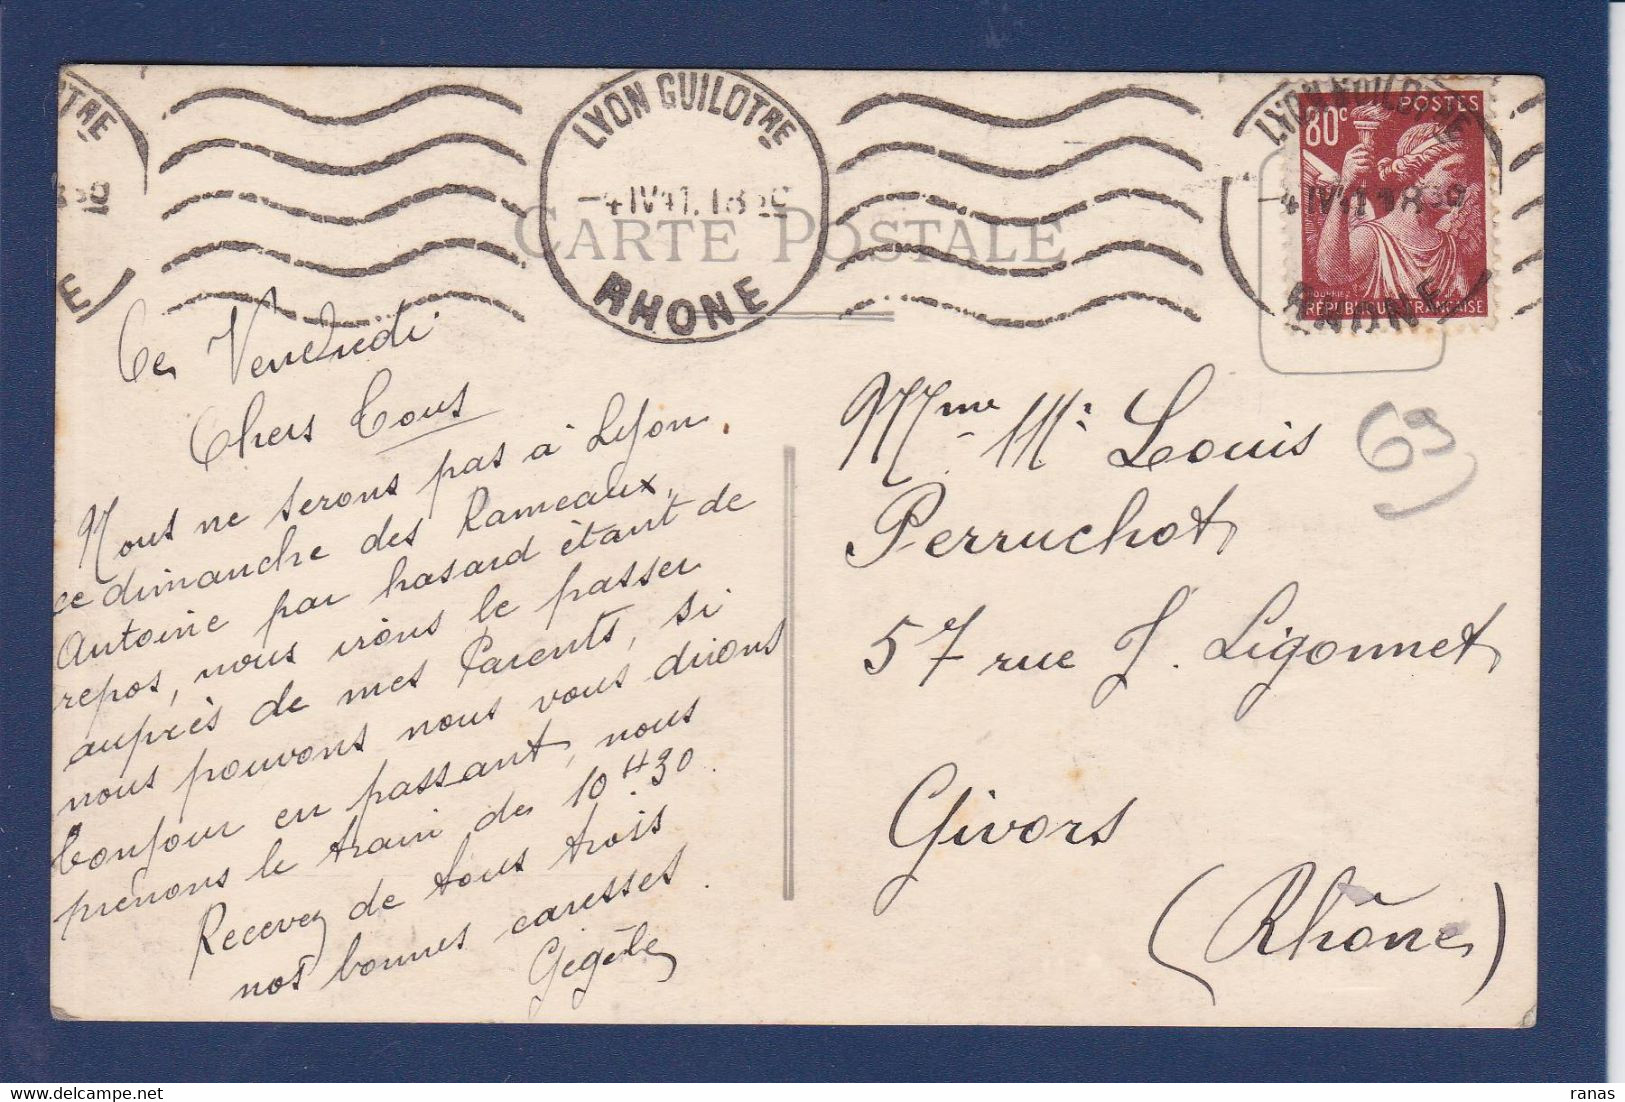 TRE
LYON GUILOTRE
-4 IV 41. 18 30
RHONE
E
CARTE POSTALE
LYON GUILOTRE
-4 IV 41 18 30
RHONE
80c
POSTES
RÉPUBLIQUE FRANÇAISE
Ce Vendredi
Chers Tous
Nous ne serons pas à Lyon
ce dimanche des Rameaux,
Antoine par hasard étant de
repos, nous irons le passer
auprès de mes Parents, si
nous pouvons nous vous dirons
bonjour en passant, nous
prenons le train de 10H30.
Recevez de tous trois
nos bonnes caresses.
Gégète
Mme Mi Louis
Perruchot
57 rue J. Ligonnet
Givors
(Rhône)
69
ranas